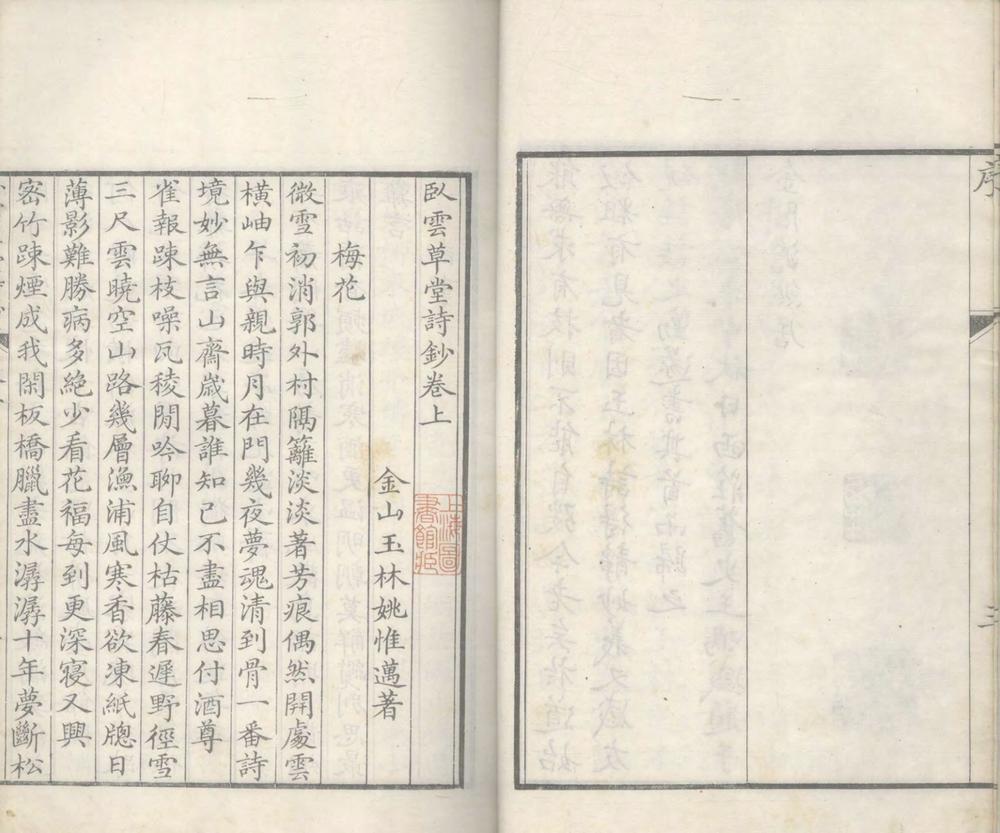 序
三
臥雲草堂詩鈔卷上
金山玉林姚惟邁著
上海圖書館藏
梅花
微雪初消郭外村隔籬淡淡著芳痕偶然開處雲
橫岫乍與親時月在門幾夜夢魂清到骨一番詩
境妙無言山齋歲暮誰知己不盡相思付酒尊
雀報踈枝噪瓦稜閒吟聊自仗枯藤春遲野徑雪
三尺雲曉空山路幾層漁浦風寒香欲凍紙牕日
薄影難勝病多絶少看花福每到更深寢又興
密竹踈煙成我閑板橋臘盡水潺潺十年夢斷松